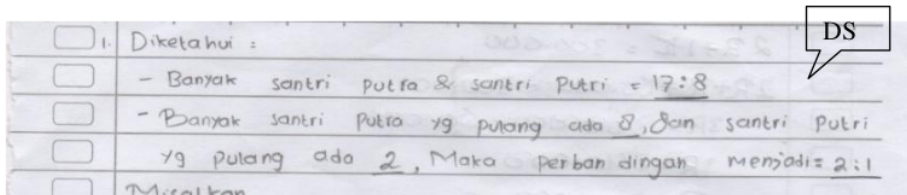 DS
1. Diketahui :
- Banyak santri putra & santri putri = 17:8
- Banyak santri putra yg pulang ada 8, dan santri putri
yg pulang ada 2, Maka perbandingan menjadi = 2:1
Misalkan